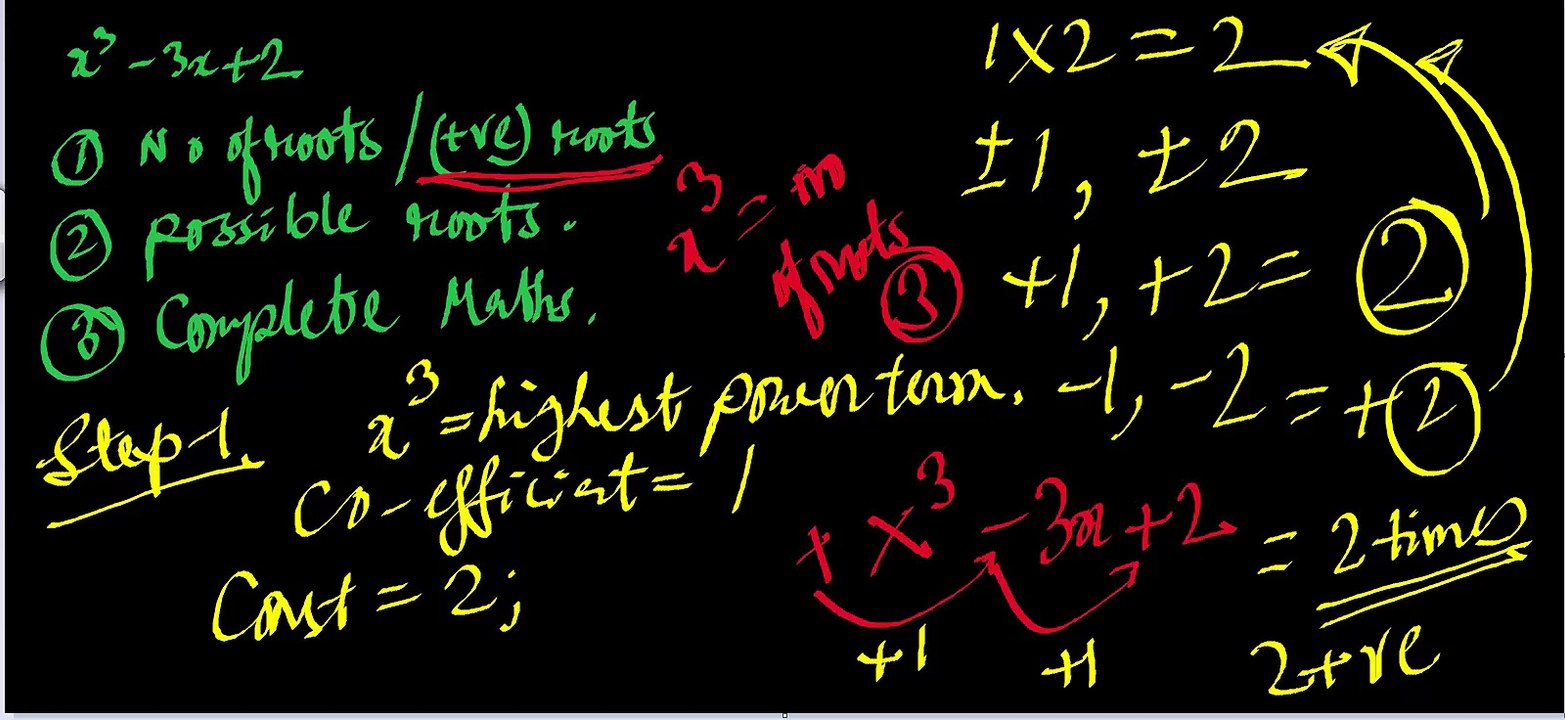 x³ - 3x + 2
① No of roots / (+ve) roots
② possible roots.
③ Complete Maths.
x³ = no
of roots
③
Step-1. x³ = highest power term.
Co-efficient = 1
Const = 2;
1 x 2 = 2
±1, ±2
+1, +2 = ②
-1, -2 = +②
+ x³ - 3x + 2 = 2 times
+1 +1
2+ve